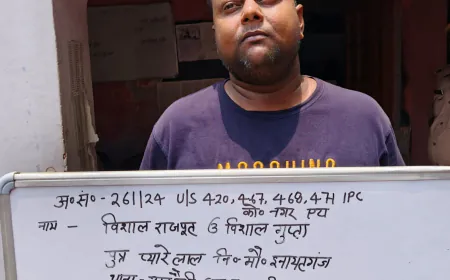 MOSCHINO
अ०सं०-261/24 U/S 420,467,468,471 IPC
को० नगर एटा
नाम - विशाल राजपूत उ विशाल गुप्ता
पुत्र प्यारेलाल नि० मौ० इनायतगंज
थाना-